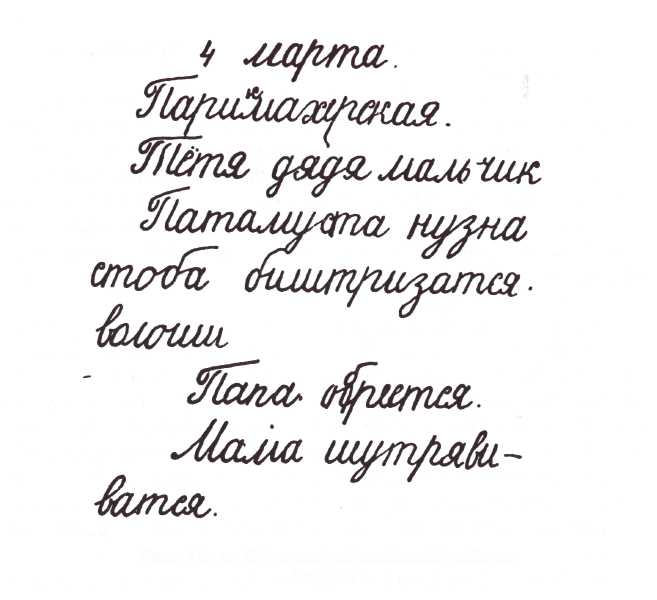 4 марта.
Паримахрская.
Тётя дядя мальчик
Патамуста нузна
стоба биштризатся.
волоши
Папа обреется.
Мама шутряви-
ватся.